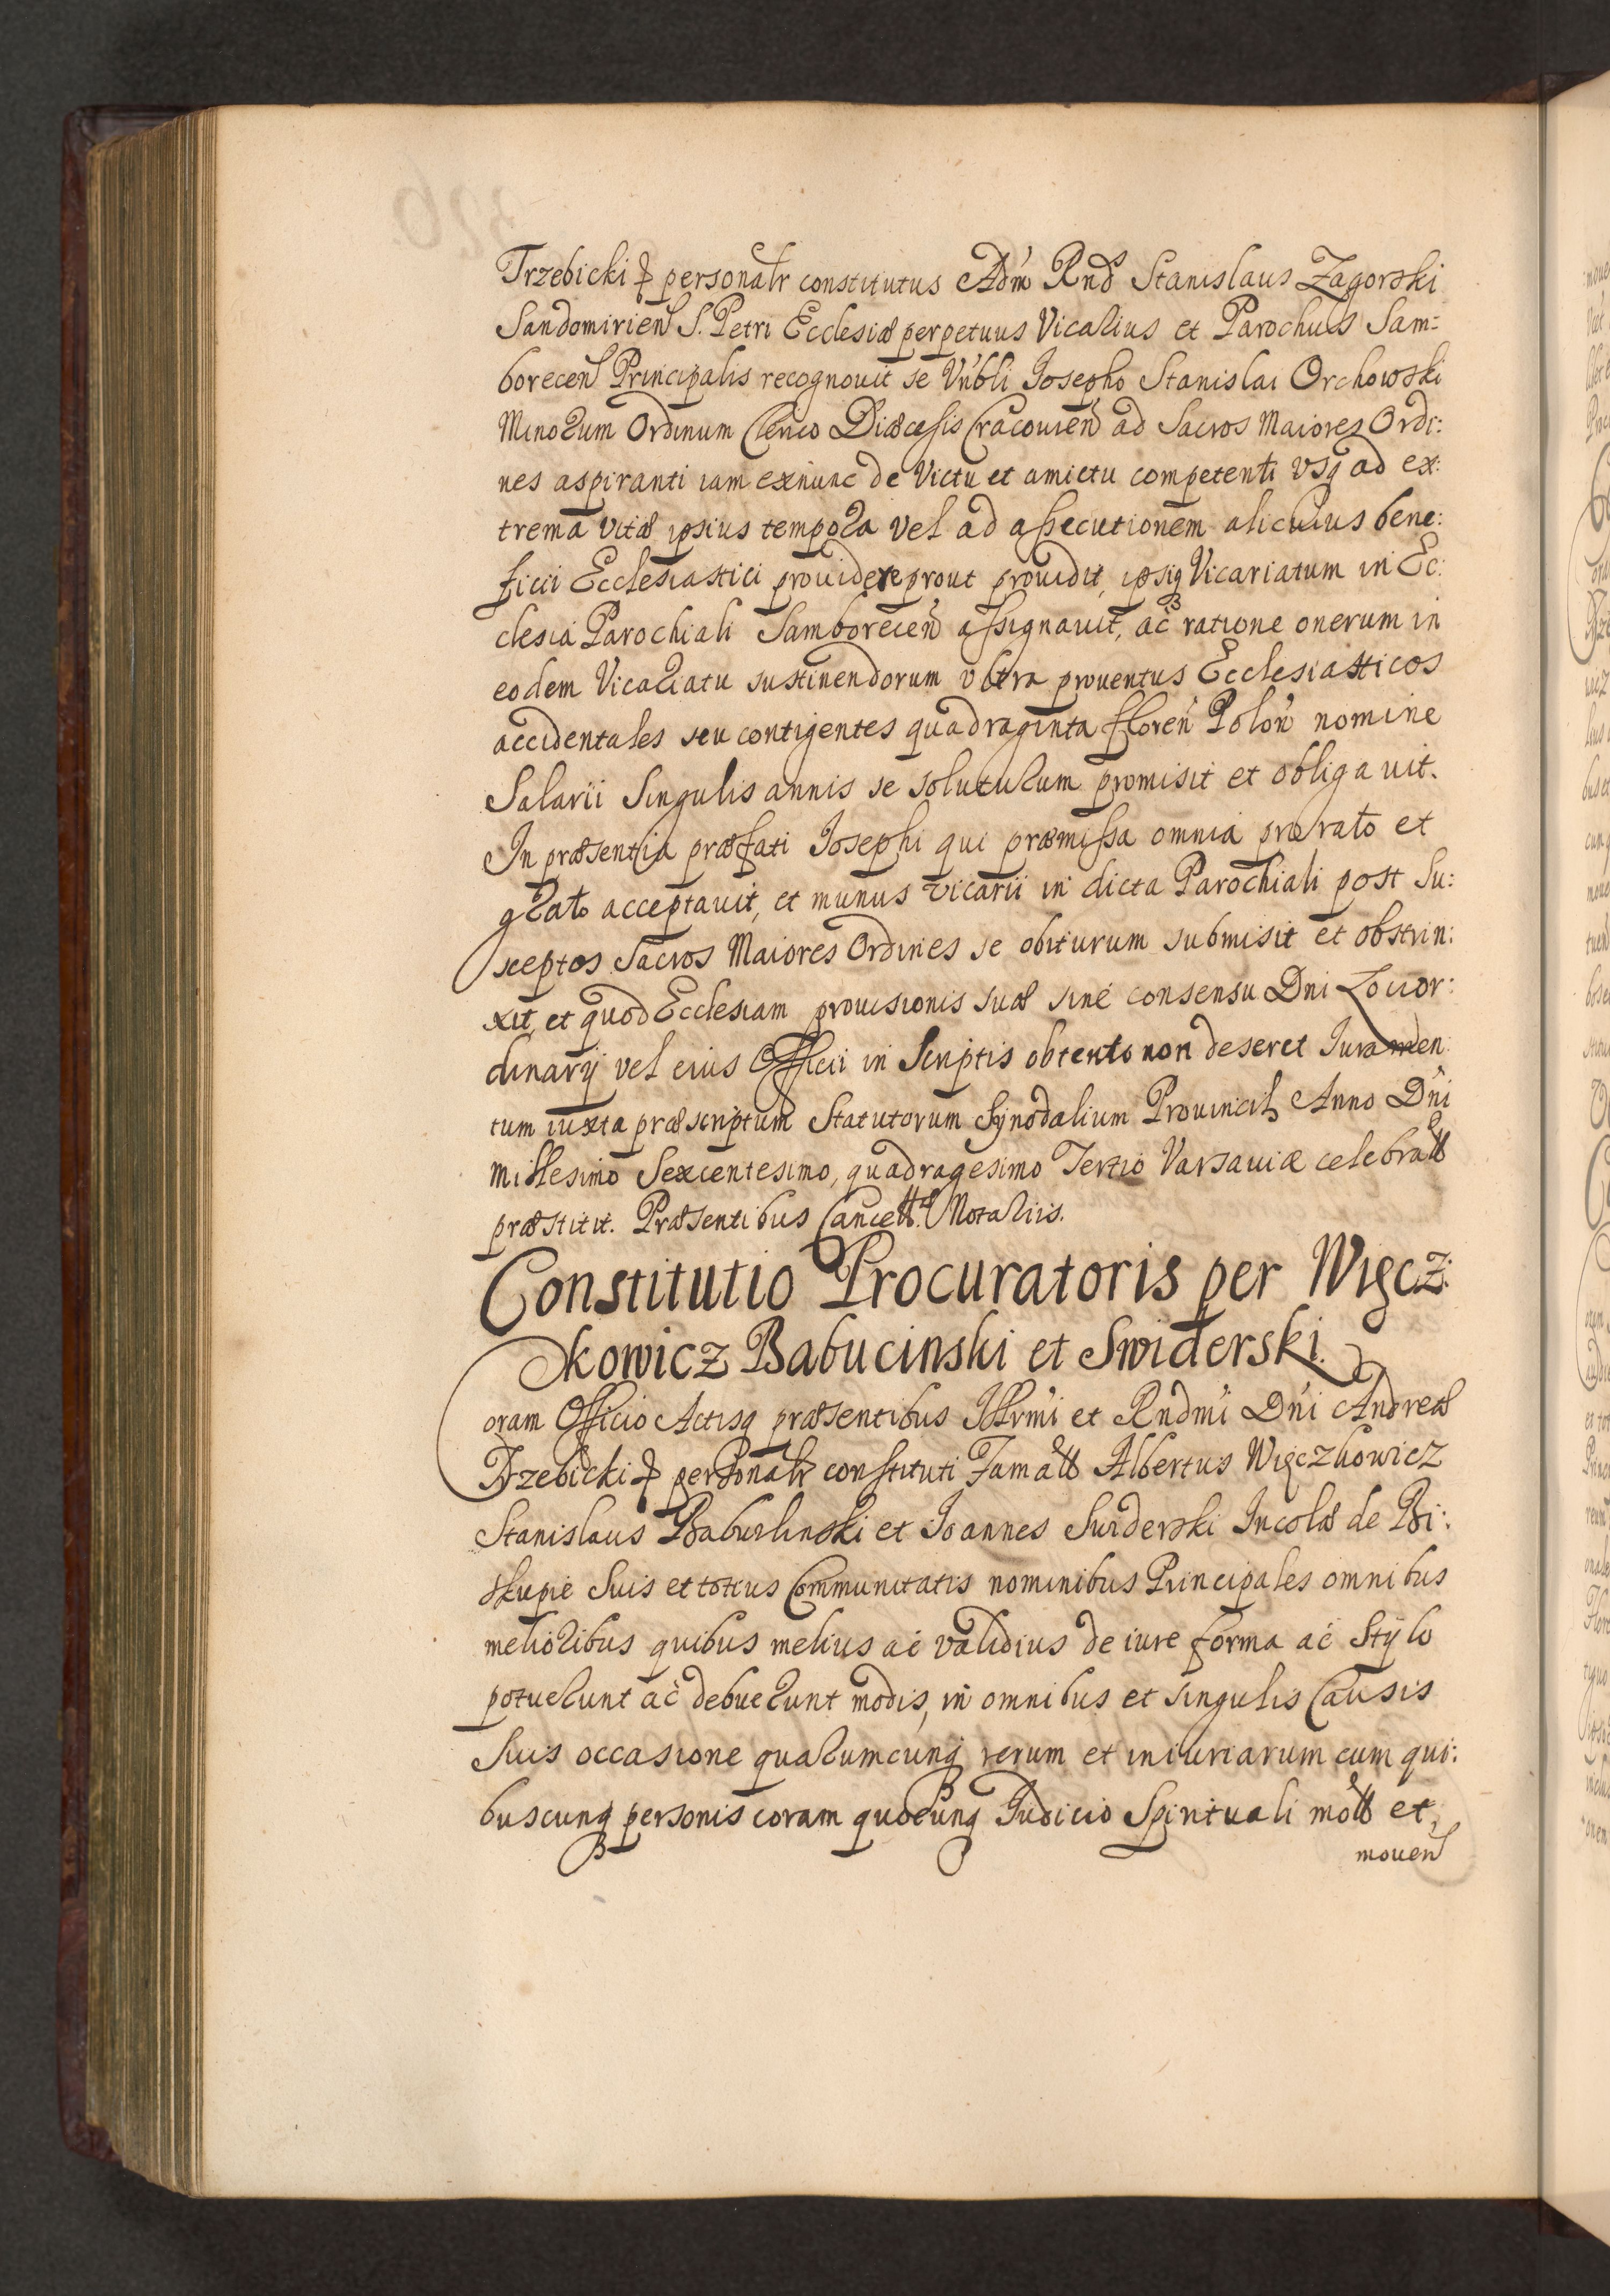 Trzebicki personalr constitutus Adm̃ Rnd Stanislaus Zagorski
Sandomirien S. Petri Ecclesiæ perpetuus Vicarius et Parochus Sam:
borecen Principalis recognouit se Vnbli Josepho Stanislai Orchowski
Minorum Ordinum Clerico Diæcesis Cracouien ad Sacros Maiores Ordi:
nes aspiranti iam exnunc de Victu et amictu competenti vsq ad ex:
trema vitæ ipsius tempora vel ad assecutionem alicuius bene:
ficii Ecclesiastici prouidere prout prouidit, ipsiq Vicariatum in Ec:
clesia Parochiali Samborecen assignauit, ac ratione onerum in
eodem Vicariatu sustinendorum vltra prouentus Ecclesiasticos
accidentales seu contigentes quadraginta floren Polon nomine
Salarii Singulis annis se soluturum promisit et obligauit.
In præsentia præfati Josephi qui præmissa omnia pro rato et
grato acceptauit, et munus vicarii in dicta Parochiali post Su:
sceptos Sacros Maiores Ordines se obiturum submisit et obstrin:
xit, et quod Ecclesiam prouisionis suæ sine consensu Dni Locior:
dinarÿ vel eius Officii in Scriptis obtento non deseret Juramen:
tum iuxta præscriptum Statutorum Synodalium Prouincil Anno Dni
Millesimo Sexcentesimo, quadragesimo Tertio Varsauiæ celebratt
præstitit. Præsentibus Cancell. Notariis.
Constitutio Procuratoris per Więcz:
kowicz Babucinski et Swiderski.
Coram Officio Actisq præsentibus Illrmi et Rndmi Dni Andreæ
Trzebicki personalr constituti Famatt Albertus Więczkowicz
Stanislaus Baburlinski et Joannes Swiderski Incolæ de Bi:
skupie Suis et totius Communitatis nominibus Principales omnibus
melioribus quibus melius ac validius de iure forma ac Stÿlo
potuerunt ac debuerunt modis, in omnibus et singulis Causis
Suis occasione quarumcunq rerum et iniuriarum cum qui:
buscunq personis coram quocunq Judicio Spirituali mott et
mouen